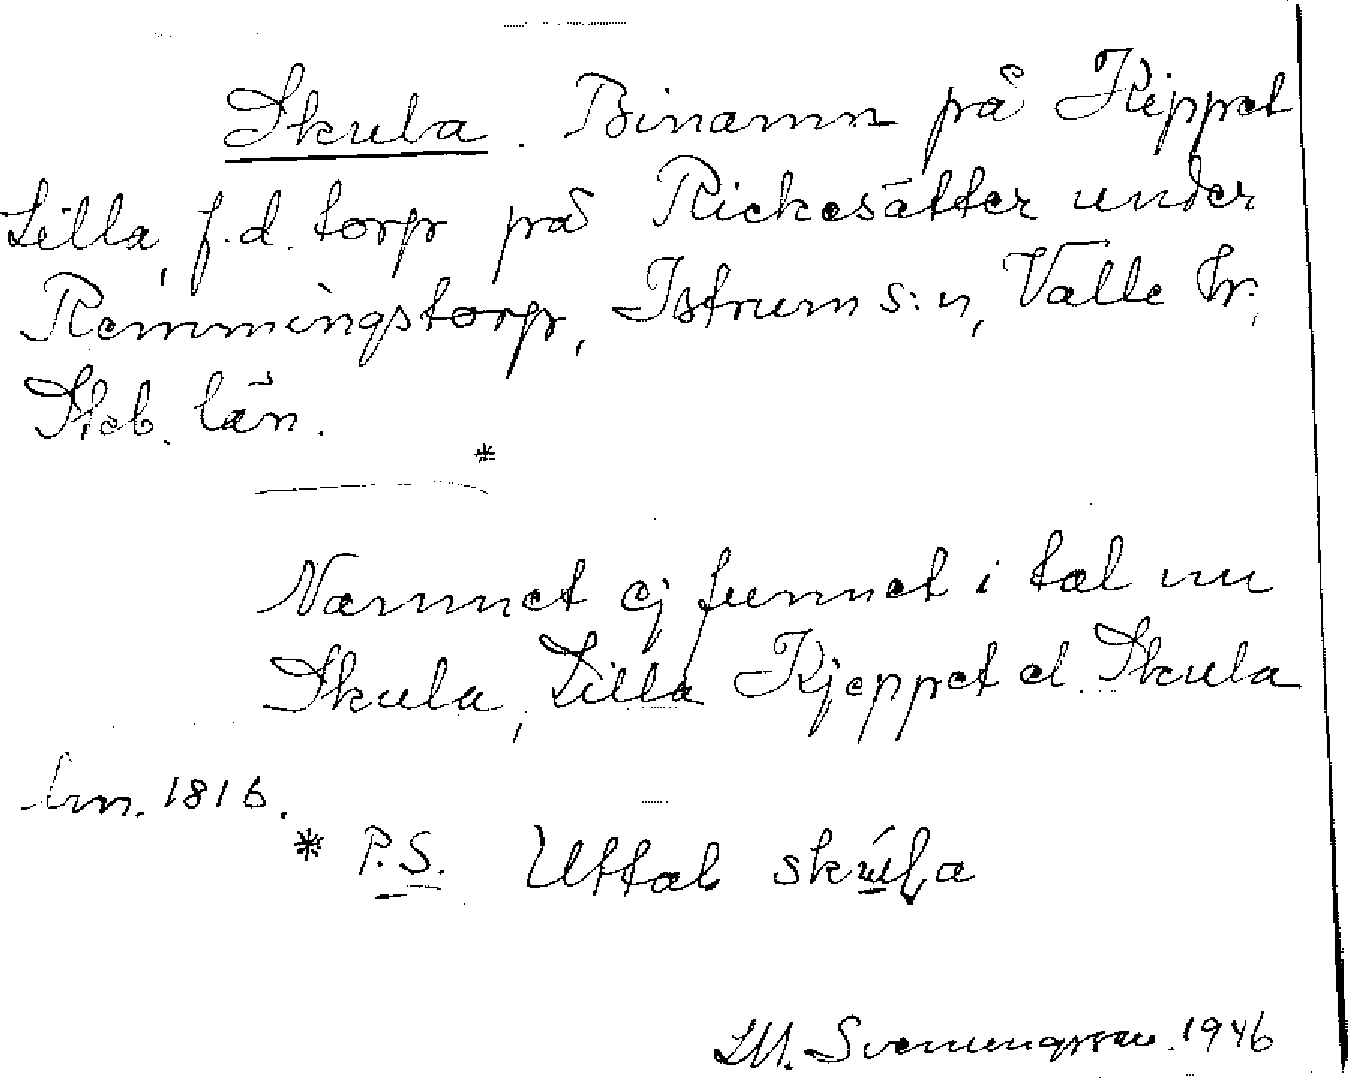 Skula. Binamn på Kippet
Lilla, f.d. torp på Rickesätter under
Remmingstorp, Istrum s:n, Valle hr.
Skab. län.
*
Namnet ej funnet i tal nu
Skula, Lilla Kjeppet el. Skula
hm. 1816.
* P.S. Uttal skúla
Svenungsson 1946